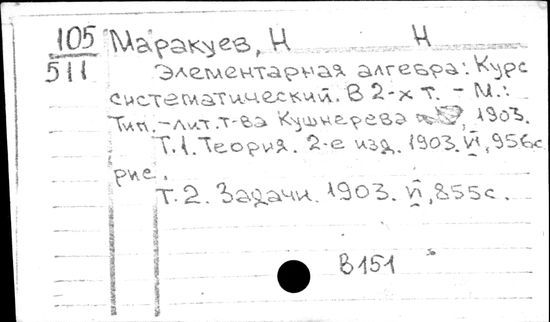 105 Маракуев, Н Н
511 Элементарная алгебра: Курс
систематический. В 2-х т. - М.:
Тип.-лит. т-ва Кушнерева , 1903.
Т.1. Теория. 2-е изд. 1903. VI, 956с
рис.
Т.2. Задачи. 1903. VI, 855с.
В151